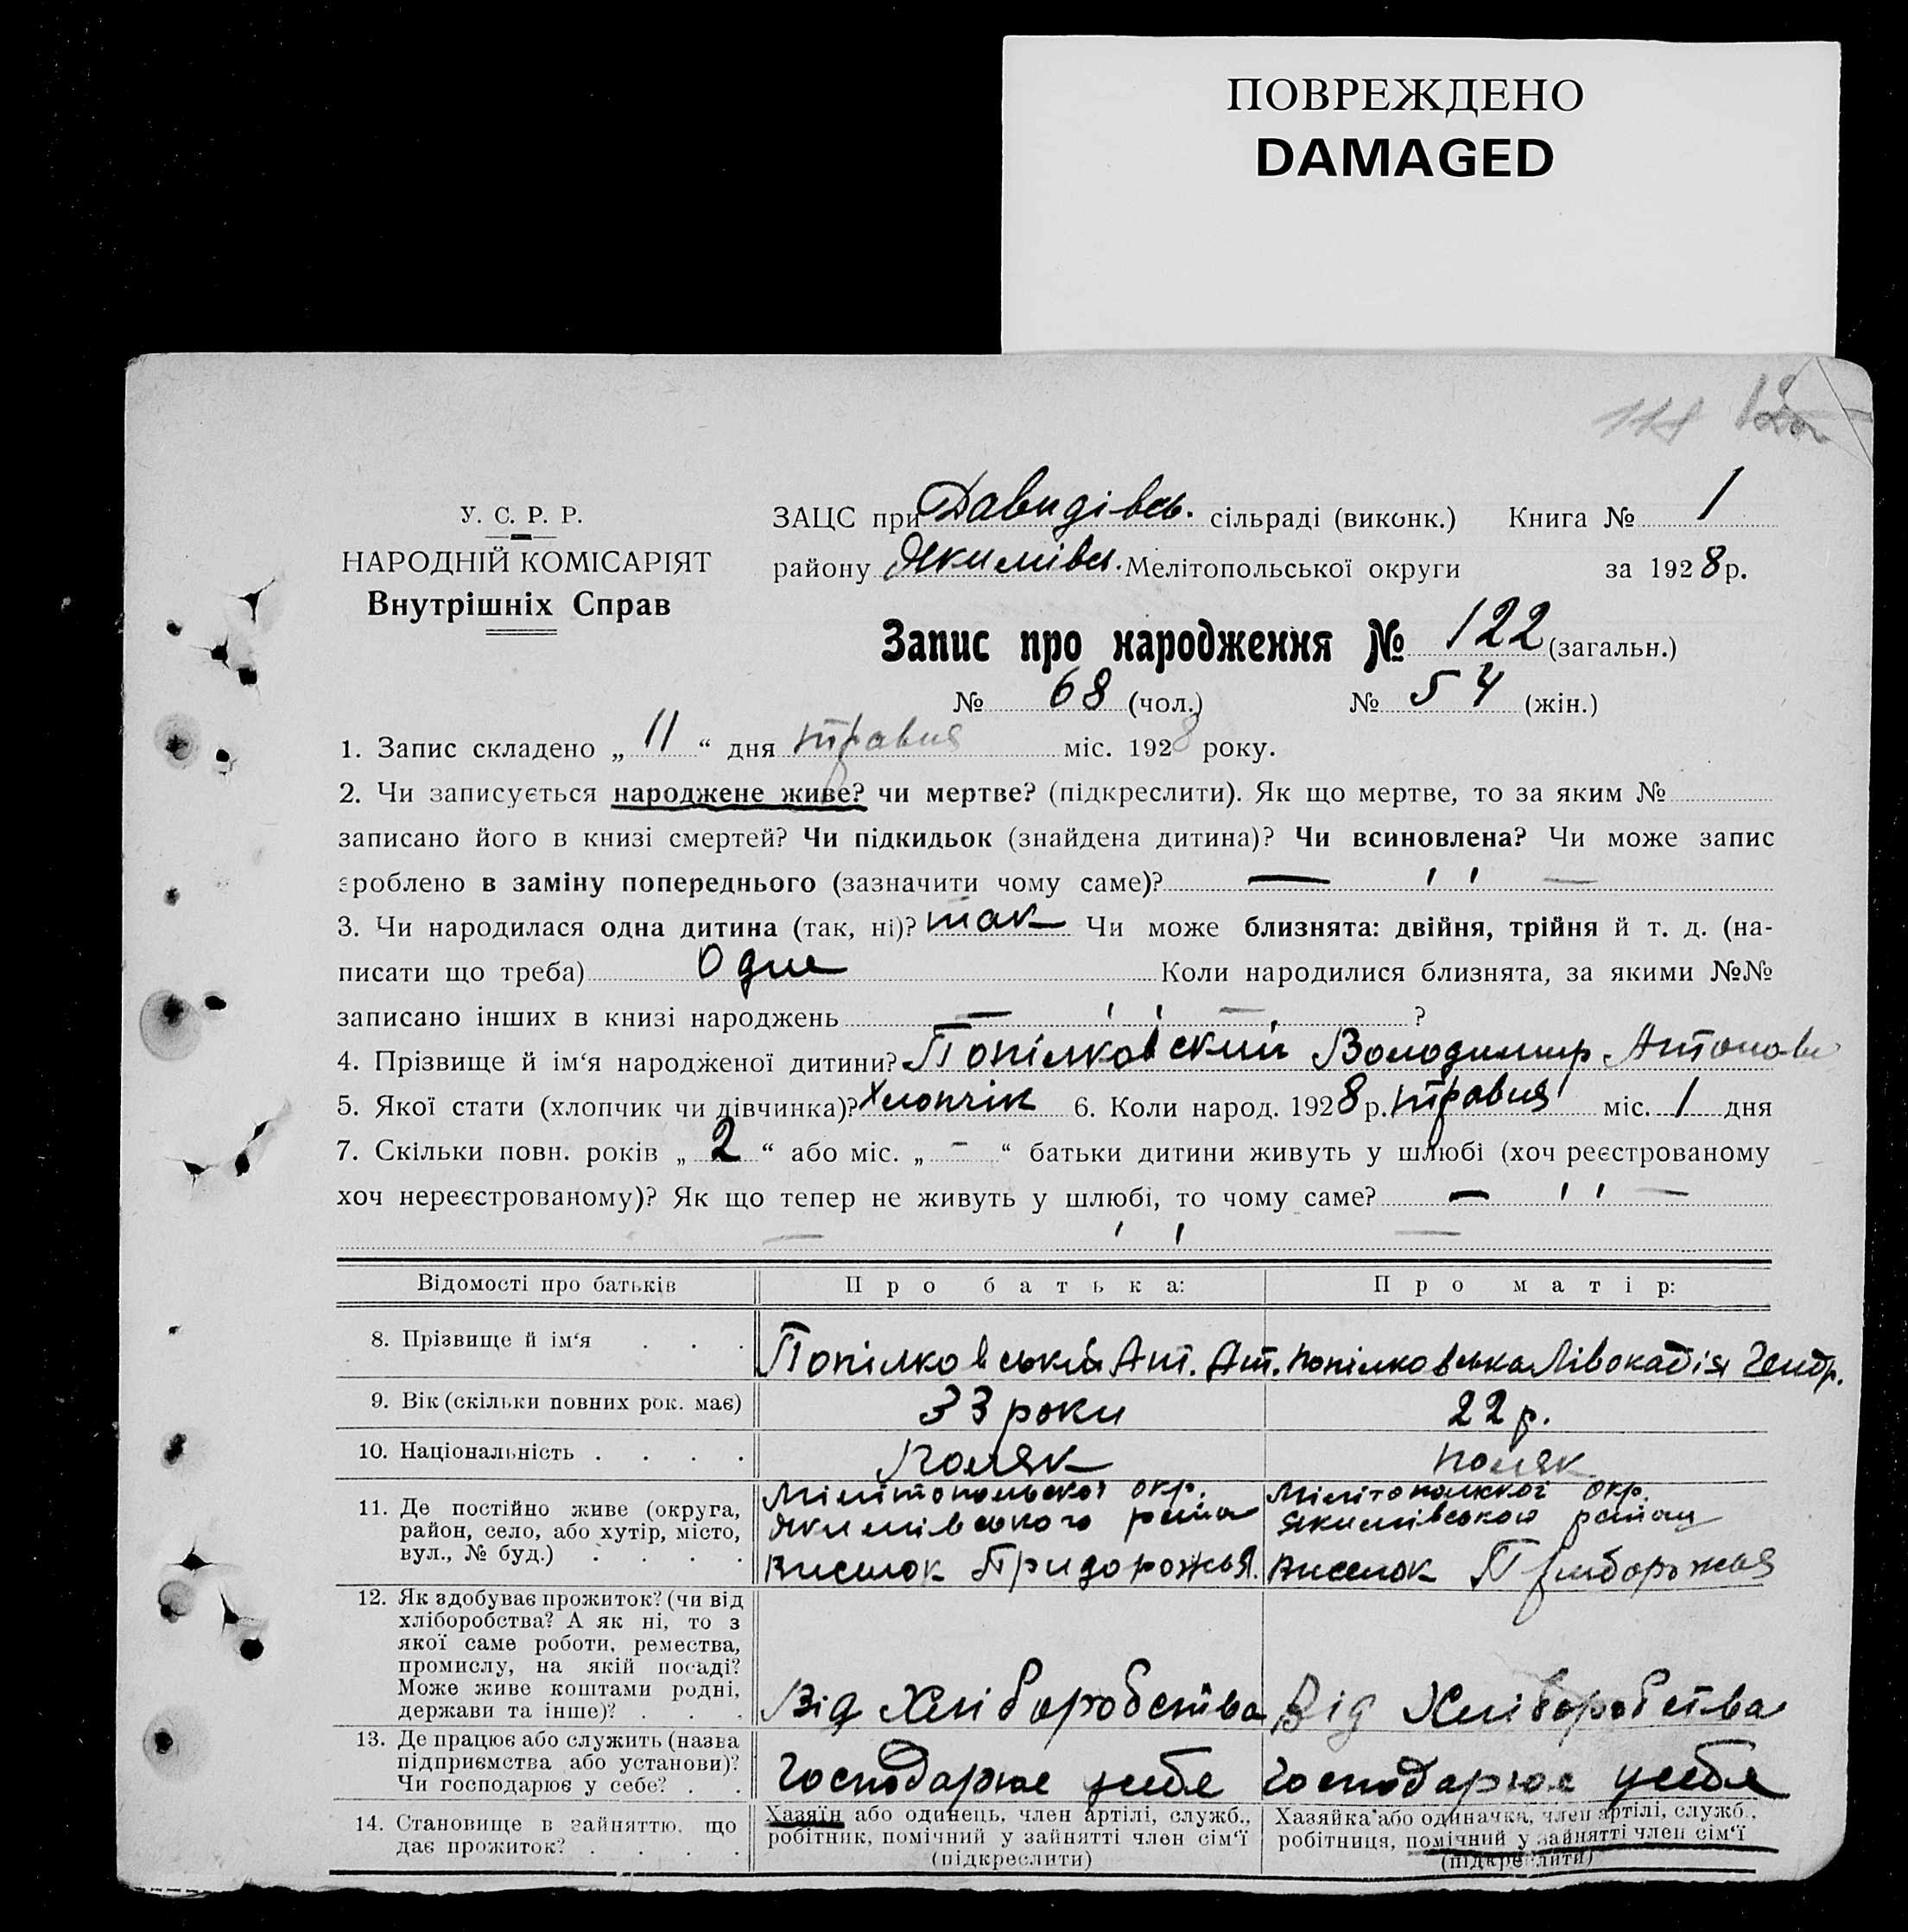 ПОВРЕЖДЕНО
DAMAGED
118
У. С. Р. Р.
НАРОДНІЙ КОМІСАРІЯТ
Внутрішніх Справ
ЗАЦС при Давидівсь. сільраді (виконк.) Книга № 1
району Якимівсь. Мелітопольської округи за 1928 р.
Запис про народження № 122 (загальн.)
№ 68 (чол.) № 54 (жін.)
1. Запис складено „ 11 “ дня травня міс. 1928 року.
2. Чи записується народжене живе? чи мертве? (підкреслити). Як що мертве, то за яким №
записано його в книзі смертей? Чи підкидьок (знайдена дитина)? Чи всиновлена? Чи може запис
зроблено в заміну попереднього (зазначити чому саме)? — ' ' —
3. Чи народилася одна дитина (так, ні)? так Чи може близнята: двійня, трійня й т. д. (на-
писати що треба) Одне Коли народилися близнята, за якими №№
записано інших в книзі народжень — ' ' — ?
4. Прізвище й ім‘я народженої дитини? Попілковский Володимир Антонови
5. Якої стати (хлопчик чи дівчинка)? Хлопчік 6. Коли народ. 1928 р. травня міс. 1 дня
7. Скільки повн. років „ 2 “ або міс. „ - “ батьки дитини живуть у шлюбі (хоч реєстрованому
хоч нереєстрованому)? Як що тепер не живуть у шлюбі, то чому саме? — ' ' —
— ' ' —
Відомості про батьків Про батька: Про матір:
8. Прізвище й ім‘я . . . Попілковській Ант. Ант. Попілковська Лівокадія
9. Вік (скільки повних рок. має) 33 роки 22 р.
10. Національність . . . . Поляк поляк
11. Де постійно живе (округа,
район, село, або хутір, місто,
вул., № буд.) . . . .
Мілітопольської окр.
Якимівського району
Виселок Придорожья.
Мілітополської окр.
Якимівського району
Виселок Придорожья
12. Як здобуває прожиток? (чи від
хліборобства? А як ні, то з
якої саме роботи, ремества,
промислу, на якій посаді?
Може живе коштами родні,
держави та інше)? . . .
Від Хліборобства Від Хліборобства
13. Де працює або служить (назва
підприємства або установи)?
Чи господарює у себе? . .
Господарює усебе Господарює усебе
14. Становище в зайняттю, що
дає прожиток? . . . .
Хазяїн або одинець, член артілі, служб.,
робітник, помічний у зайнятті член сім‘ї
(підкреслити)
Хазяйка або одиначка, член артілі, служб.,
робітниця, помічний у зайнятті член сім‘ї
(підкреслити)